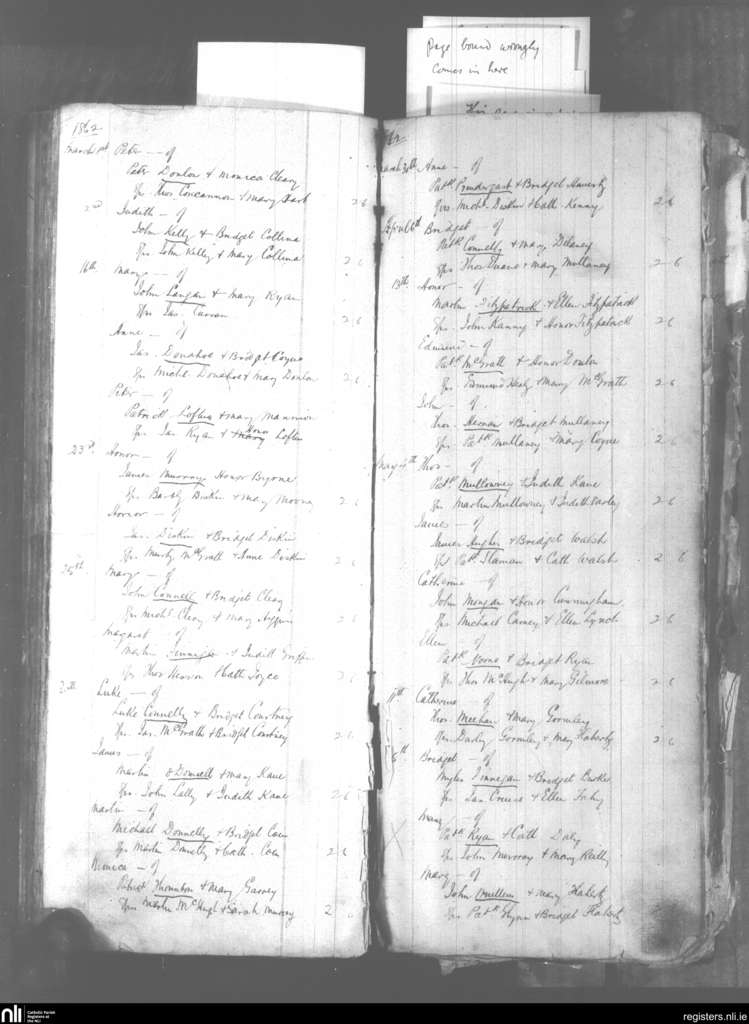 Page bound wrongly
comes in here
1862
March 1st Peter — of
Peter Donlon & Monica Cleary
Sps Thos Concannon & Mary
2 6
2nd Judith — of
John Kelly & Bridget Collins
Sps John Kelly & Mary Collins
2 6
16th Mary — of
John Langan & Mary Ryan
Sps Jas.
2 6
Anne — of
Jas. Donahoe & Bridget Coyne
Sps Michl Donahoe & Mary Donlon
2 6
Peter — of
Patrick Loftus & Mary Mannion
Sps Jas Ryan & Mary Honor Loftus
23rd Honor — of
James Murray Honor Byrne
Sps Bartly & Mary
2 6
Honor — of
Jas. Diskin & Bridget Diskin
Sps Marty McGrath & Anne Diskin
2 6
25th Mary — of
John Connell & Bridget Cleary
Sps Michl Cleary & Mary Higgins
2 6
Margaret — of
Martin Finnegan & Judith
Sps Thos & Cath Joyce
2 6
Luke — of
Luke Connelly & Bridget Courtney
Sps Jas. McGrath & Bridget Courtney
2 6
James — of
Martin & Mary Kane
Sps John Lally & Judith Kane
2 6
Martin — of
Michael Donnelly & Bridget Coen
Sps Martin Donnelly & Cath. Coen
2 6
Monica — of
Patrick Thornton & Mary Garvey
Sps Martin McHugh & Sarah Murray
2 6
62
March 30th Anne — of
Patk Prendergast & Bridget Haverty
Sps Michl Diskin & Cath Kenny
2 6
April 6th Bridget of
Patk Connelly & Mary Delaney
Sps Thos & Mary Mullaney
2 6
13th Honor — of
Martin Fitzpatrick & Ellen Fitzpatrick
Sps John Kanny & Honor Fitzpatrick
2 6
Edmund — of
Patk McGrath & Honor Donlon
Sps Edmund Healy & Mary McGrath
2 6
John — of
Thos. & Bridget Mullaney
Sps Patk Mullaney & Mary Coyne
2 6
May 4th Thos — of
Patk Mullowney & Judith Kane
Sps Martin Mullowney & Judith
2 6
James — of
James Hughes & Bridget Walsh
Sps Patk & Cath Walsh
2 6
Catherine — of
John Mongan & Honor Cunningham
Sps Michael Carney & Ellen Lynch
2 6
Ellen of
Patk & Bridget Ryan
Sps Thos McHugh & Mary Gilmore
2 6
11th Catherine — of
Thos. Meehan & Mary Gormley
Sps Darby Gormley & Mary Flaherty
2 6
Bridget — of
Myles Finnegan & Bridget Burke
Sps Jas. & Ellen Fahy
Mary — of
Patk Ryan & Cath Daly
Sps John Murray & Mary Reilly
Mary — of
John Mullins & Mary Flaherty
Sps Patk Flynn & Bridget Flaherty
nli Catholic Parish
Registers at
the NLI
registers.nli.ie